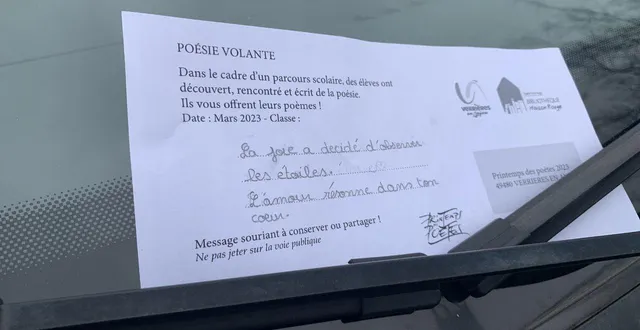 POÉSIE VOLANTE
Dans le cadre d'un parcours scolaire, des élèves ont
découvert, rencontré et écrit de la poésie.
Ils vous offrent leurs poèmes !
Date : Mars 2023 - Classe :
La joie a decidé d'observer
les étoiles.
L'amour résonne dans ton
coeur.
Message souriant à conserver ou partager !
Ne pas jeter sur la voie publique
VERRIÈRES
en Anjou
BIBLIOTHÈQUE
Printemps des poètes 2023
49480 VERRIERES-EN